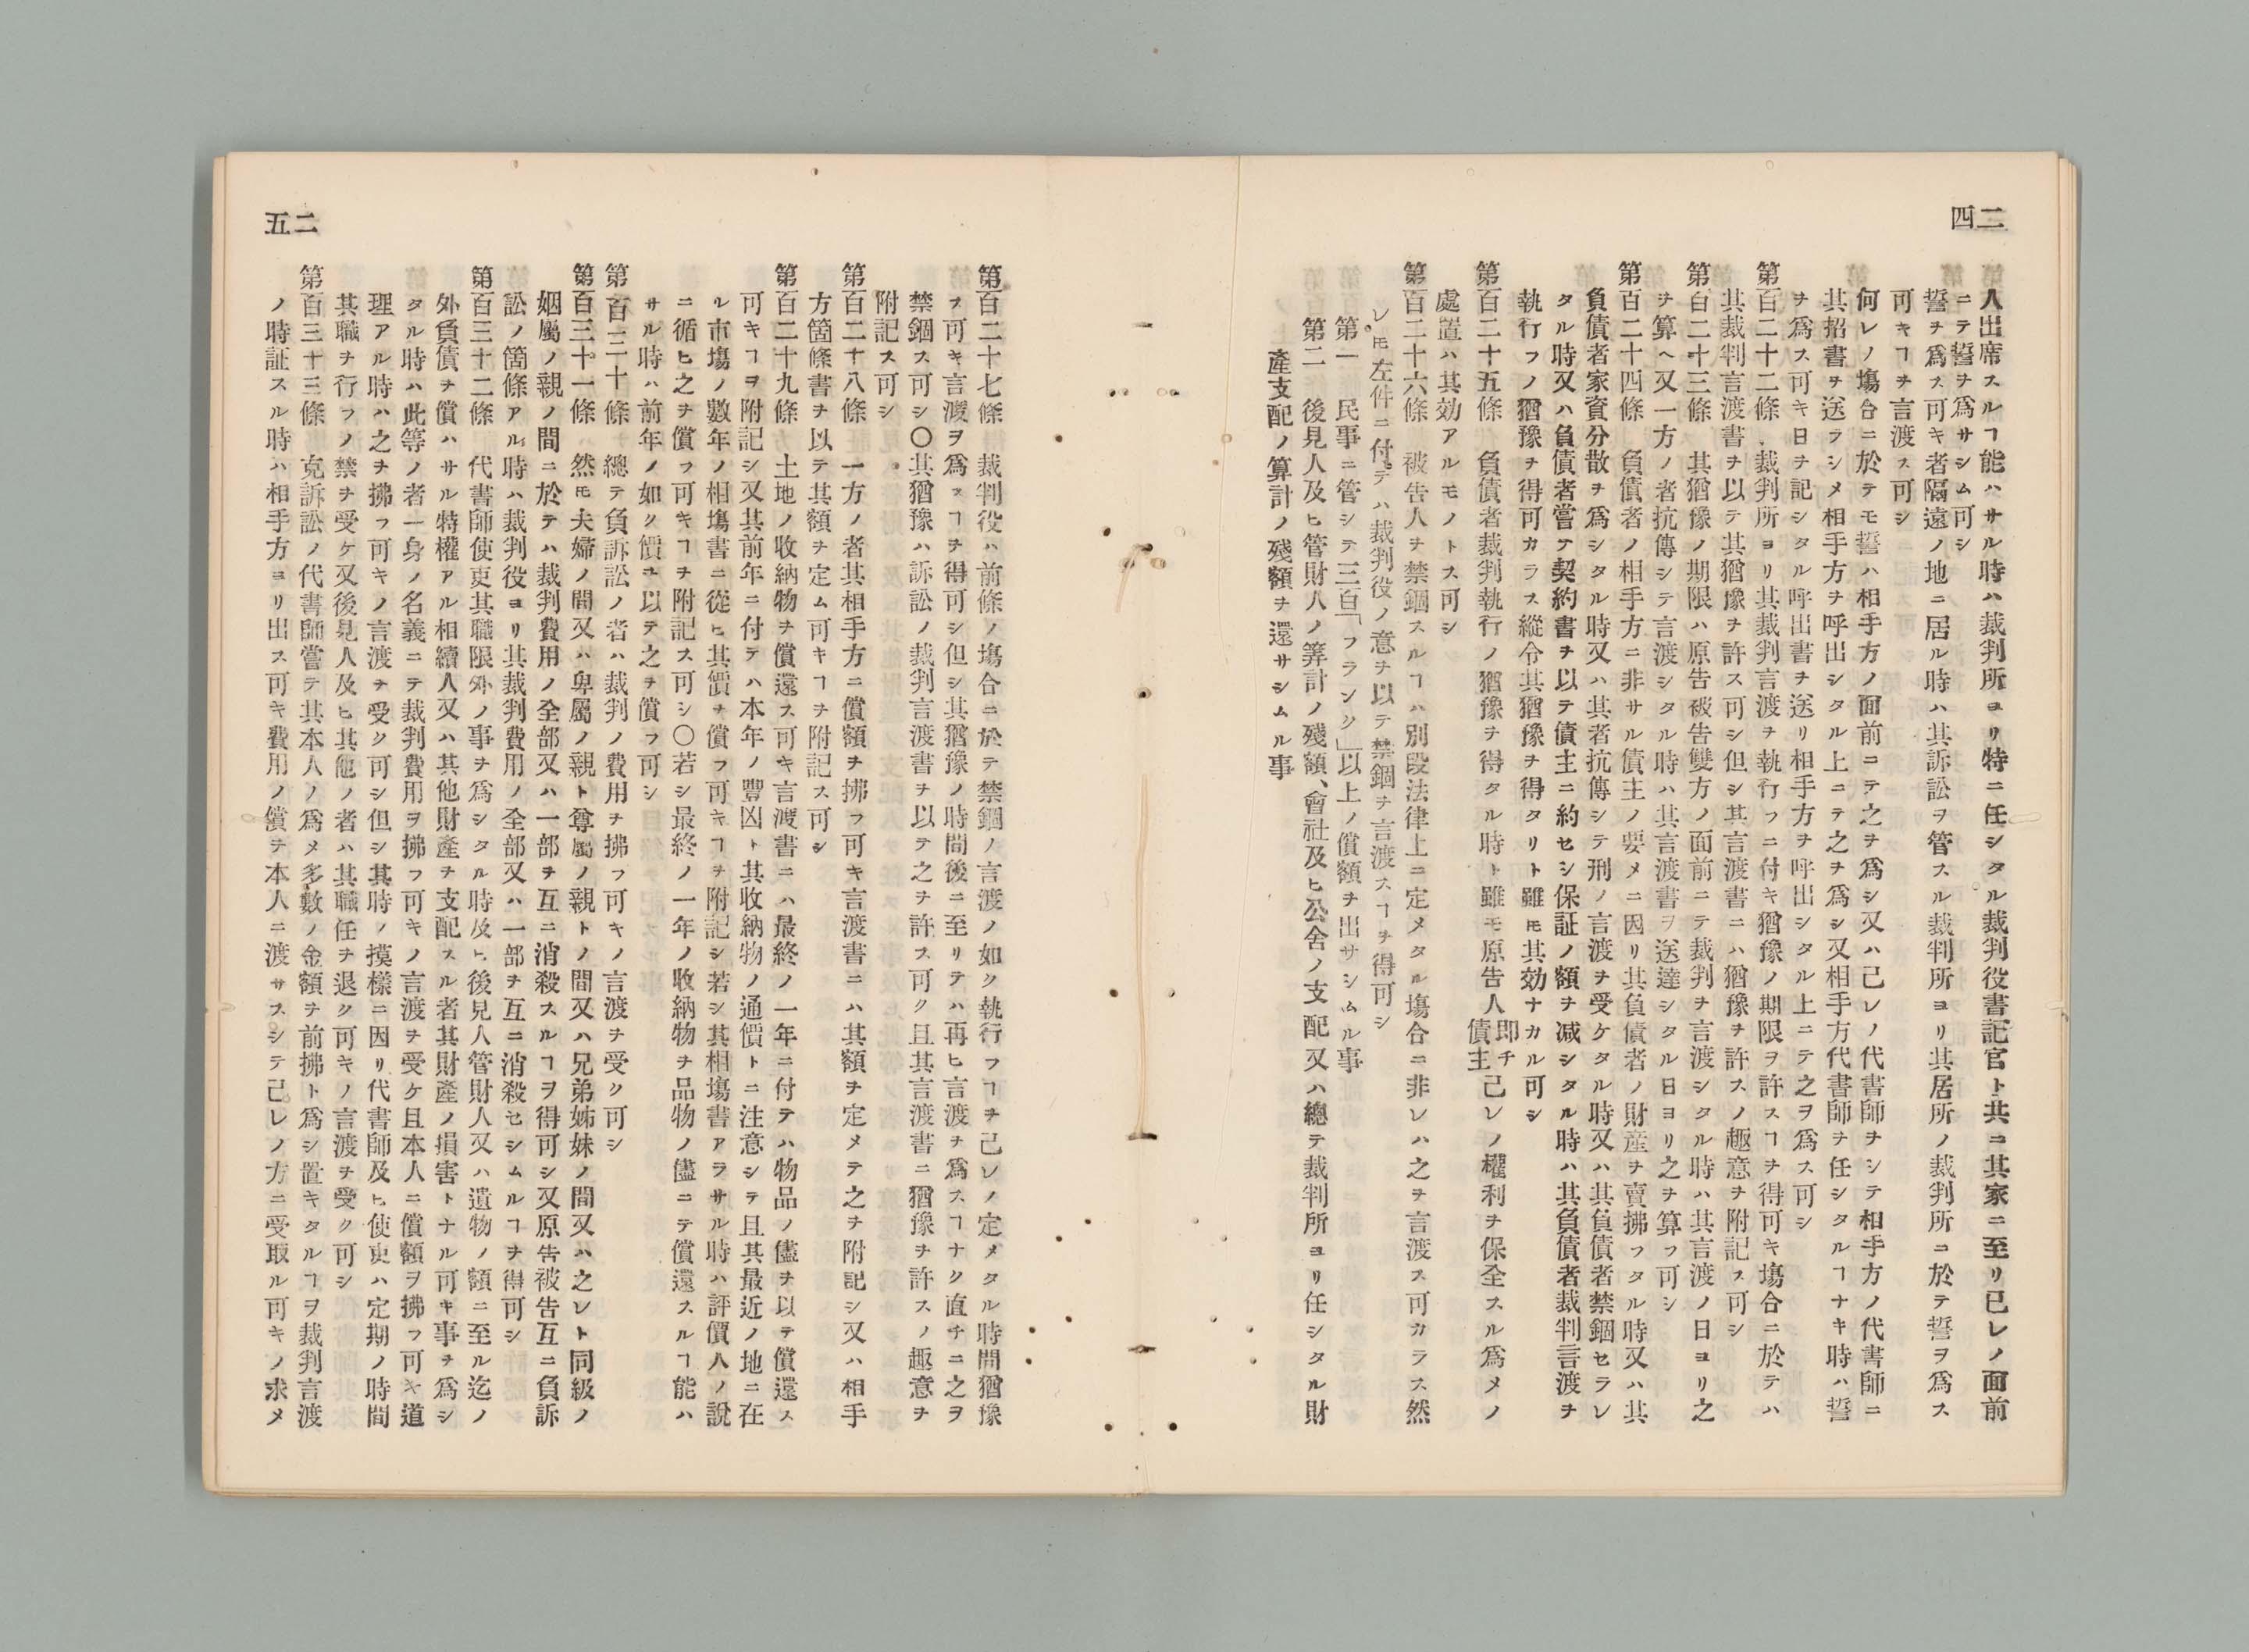 二四
人出席スルヿ能ハサル時ハ裁判所ヨリ特ニ任シタル裁判役書記官ト共ニ其家ニ至リ已レノ面前
ニテ誓ヲ爲サシム可シ
誓ヲ爲ス可キ者隔遠ノ地ニ居ル時ハ其訴訟ヲ管スル裁判所ヨリ其居所ノ裁判所ニ於テ誓ヲ爲ス
可キヿヲ言渡ス可シ
何レノ塲合ニ於テモ誓ハ相手方ノ面前ニテ之ヲ爲シ又ハ己レノ代書師ヲシテ相手方ノ代書師ニ
其招書ヲ送ラシメ相手方ヲ呼出シタル上ニテ之ヲ爲シ又相手方代書師ヲ任シタルヿナキ時ハ誓
ヲ爲ス可キ日ヲ記シタル呼出書ヲ送リ相手方ヲ呼出シタル上ニテ之ヲ爲ス可シ
第百二十二條 裁判所ヨリ其裁判言渡ヲ執行フニ付キ猶豫ノ期限ヲ許スヿヲ得可キ塲合ニ於テハ
其裁判言渡書ヲ以テ其猶豫ヲ許ス可シ但シ其言渡書ニハ猶豫ヲ許スノ趣意ヲ附記ス可シ
第百二十三條 其猶豫ノ期限ハ原告被告雙方ノ面前ニテ裁判ヲ言渡シタル時ハ其言渡ノ日ヨリ之
ヲ算ヘ又一方ノ者抗傳シテ言渡シタル時ハ其言渡書ヲ送達シタル日ヨリ之ヲ算フ可シ
第百二十四條 負債者ノ相手方ニ非サル債主ノ要メニ因リ其負債者ノ財産ヲ賣拂フタル時又ハ其
負債者家資分散ヲ爲シタル時又ハ其者抗傳シテ刑ノ言渡ヲ受ケタル時又ハ其負債者禁錮セラレ
タル時又ハ負債者甞テ契約書ヲ以テ債主ニ約セシ保証ノ額ヲ减シタル時ハ其負債者裁判言渡ヲ
執行フノ猶豫ヲ得可カラス縱令其猶豫ヲ得タリト雖𪜈其効ナカル可シ
第百二十五條 負債者裁判執行ノ猶豫ヲ得タル時ト雖モ原告人即チ債主己レノ權利ヲ保全スル爲メノ
處置ハ其効アルモノトス可シ
第百二十六條 被告人ヲ禁錮スルヿハ別段法律上ニ定メタル塲合ニ非レハ之ヲ言渡ス可カラス然
レ𪜈左件ニ付テハ裁判役ノ意ヲ以テ禁錮ヲ言渡スヿヲ得可シ
第一 民事ニ管シテ三百「フランク」以上ノ償額ヲ出サシムル事
第二 後見人及ヒ管財人ノ筭計ノ殘額、會社及ヒ公舍ノ支配又ハ總テ裁判所ヨリ任シタル財
產支配ノ算計ノ殘額ヲ還サシムル事
二五
第百二十七條 裁判役ハ前條ノ塲合ニ於テ禁錮ノ言渡ノ如ク執行フヿヲ己レノ定メタル時間猶豫
ス可キ言渡ヲ爲スヿヲ得可シ但シ其猶豫ノ時間後ニ至リテハ再ヒ言渡ヲ爲スヿナク直チニ之ヲ
禁錮ス可シ〇其猶豫ハ訴訟ノ裁判言渡書ヲ以テ之ヲ許ス可ク且其言渡書ニ猶豫ヲ許スノ趣意ヲ
附記ス可シ
第百二十八條 一方ノ者其相手方ニ償額ヲ拂フ可キ言渡書ニハ其額ヲ定メテ之ヲ附記シ又ハ相手
方箇條書ヲ以テ其額ヲ定ム可キヿヲ附記ス可シ
第百二十九條 土地ノ收納物ヲ償還ス可キ言渡書ニハ最終ノ一年ニ付テハ物品ノ儘ヲ以テ償還ス
可キヿヲ附記シ又其前年ニ付テハ本年ノ豐凶ト其收納物ノ通價トニ注意シテ且其最近ノ地ニ在
ル市塲ノ數年ノ相塲書ニ從ヒ其價ヲ償フ可キヿヲ附記シ若シ其相塲書アラサル時ハ評價人ノ說
ニ循ヒ之ヲ償フ可キヿヲ附記ス可シ〇若シ最終ノ一年ノ收納物ヲ品物ノ儘ニテ償還スルヿ能ハ
サル時ハ前年ノ如ク價ヲ以テ之ヲ償フ可シ
第百三十條 總テ負訴訟ノ者ハ裁判ノ費用ヲ拂フ可キノ言渡ヲ受ク可シ
第百三十一條 然𪜈夫婦ノ間又ハ卑屬ノ親ト尊屬ノ親トノ間又ハ兄弟姊妹ノ間又ハ之レト同級ノ
姻屬ノ親ノ間ニ於テハ裁判費用ノ全部又ハ一部ヲ互ニ消殺スルヿヲ得可シ又原告被告互ニ負訴
訟ノ箇條アル時ハ裁判役ヨリ其裁判費用ノ全部又ハ一部ヲ互ニ消殺セシムルヿヲ得可シ
第百三十二條 代書師使吏其職限外ノ事ヲ爲シタル時及ヒ後見人管財人又ハ遺物ノ額ニ至ル迄ノ
外負債ヲ償ハサル特權アル相續人又ハ其他財產ヲ支配スル者其財產ノ損害トナル可キ事ヲ爲シ
タル時ハ此等ノ者一身ノ名義ニテ裁判費用ヲ拂フ可キノ言渡ヲ受ケ且本人ニ償額ヲ拂フ可キ道
理アル時ハ之ヲ拂フ可キノ言渡ヲ受ク可シ但シ其時ノ摸樣ニ因リ代書師及ヒ使吏ハ定期ノ時間
其職ヲ行フノ禁ヲ受ケ又後見人及ヒ其他ノ者ハ其職任ヲ退ク可キノ言渡ヲ受ク可シ
第百三十三條 克訴訟ノ代書師甞テ其本人ノ爲メ多數ノ金額ヲ前拂ト爲シ置キタルヿヲ裁判言渡
ノ時証スル時ハ相手方ヨリ出ス可キ費用ノ償ヲ本人ニ渡サスシテ己レノ方ニ受取ル可キノ求メ